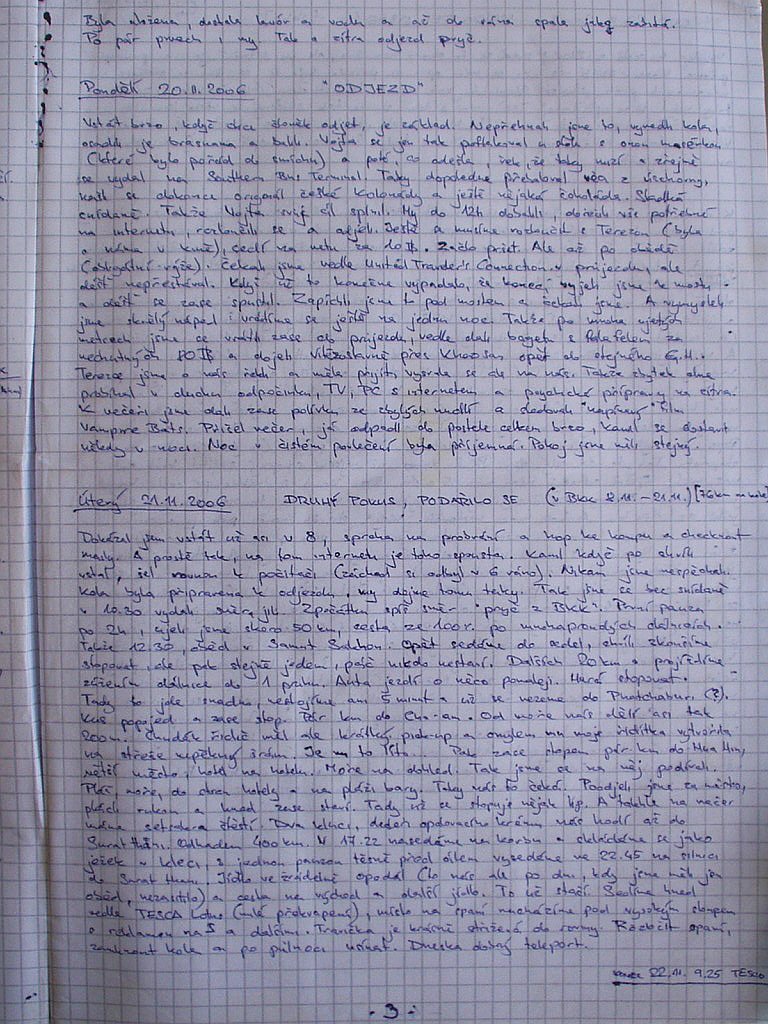 Byla uložena, dostala lavór a vodu a až do rána spala jako zabitá.
Po pár pivech i my. Tak a zítra odjezd pryč.
Pondělí 20.11.2006 "ODJEZD"
Vstát brzo, když chce člověk odjet, je základ. Nepřehnali jsme to, vyvedli kola,
osadili je brašnama a balili. Vojta se jen tak poflakoval a
(které bylo pořád do smíchu) a poté, co odešla, řek, že taky mizí a zřejmě
se vydal na Southern Bus Terminal. Taky dopoledne přichaloval věci z úschovny,
našli se dokonce originál české Kolonády a ještě nějaká čokoláda. Sladká
snídaně. Takže Vojta svůj cíl splnil. My do 12h dobalili, dořešili vše potřebné
na internetu, rozloučili se a odjeli. Ještě a musíme rozloučit s Terezou (byla
a náma v kině), sedí na netu za 10B. Začlo pršet. Ale až po obědě
Čekali jsme vedle United Trander's Connection v průjezdu, ale
déšť nepřestával. Když už to konečně vypadalo, že končí, vyjeli jsme ze mostu
a déšť se zase spustil. Zapíchli jsme to pod mostem a čekali jsme. A vymysleli
jsme skvělý nápad i vrátíme se ještě na jednu noc. Takže po mnoha ujetých
metrech jsme se vrátili zase do průjezdu, vedle dali bagety s falafelem za
nechutných 80B a dojeli vítězoslavně přes Khaosan opět do stejného G.H..
Tereze jsme o nás řekli a měla přijít, vysrala se ale na nás. Takže zbytek dne
probíhal v duchu odpočinku, TV, PC s internetem a psychické přípravy na zítra.
K večeři jsme dali zase polívku ze zbylých nudlí a sledovali "napínavý" film
Vampire Bats. Přišel večer, já odpadl do postele celkem brzo, Kamil se dostavil
někdy v noci. Noc v čistém povlečení byla příjemná. Pokoj jsme měli stejný.
Úterý 21.11.2006 DRUHÝ POKUS, PODAŘILO SE (v Bkk 8.11.-21.11.) [76km na kole]
Dokázal jsem vstát už asi v 8, sprcha na probrání a hop ke kompu a checknout
maily. A prostě tak, na tom internetu je toho spousta. Kamil když po chvíli
vstal, šel rovnou k počítači (záchod si odbyl v 6 ráno). Nikam jsme nespěchali.
Kola byla připravena k odjezdu, my dojma tomu taky. Tak jsme se bez snídaně
v 10.30 vydali směr jih. Zpočátku spíš směr "pryč z Bkk". První pauza
po 2h, ujeli jsme skoro 50 km, cesta ze 100% po mnohaproudých dálnicích.
Takže 12.30, oběd v Samut Sakhon. Opět sedáme do sedel, chvíli zkoušíme
stopovat, ale pak stejně jedem, páč nikdo nestaví. Dalších 20km a projíždíme
zúžením dálnice do 1 pruhu. Auta jezdí o něco pomaleji. Hurá stopovat.
Tady to jde snadno, nestojíme ani 5 minut a už se vezeme do Phetchaburi (?).
Kus popojet a zase stop. Pár km do Cha-am. Od moře nás dělí asi tak
200m. Chudák řidič měl ale krátký pick-up a omylem mu moje řídítka vytvořila
na střeše krásný šrám. Je mu to líto... Pak zase stopem pár km do Hua Hin,
větší město, hotel na hotelu. Moře na dohled. Tak jsme se na něj podívali.
Pláž, moře, do obou hotely a na pláži bary. Taky nás to čeká. Poodjeli jsme za město,
plácli rukou a hned zase staví. Tady už se stopuje nějak líp. A takhle na večer
máme setsakra štěstí. Dva kluci, dealeři opalovacího krému nás hodí až do
Surat thani. Odhadem 400km. V 17.22 nasedáme na korbu a skládáme se jako
ježek v kleci, s jednou pauzou těsně před cílem vysedáme ve 22.45 na silnici
do Surat thani. Jídlo ve zrádelně opodál (To nás ale po dni, kdy jsme měli jen
oběd, nezasitilo) a cesta na východ a další jídlo. To už stačí. Sedíme hned
vedle TESCA Lotus (milé překvapení), místo na spaní nacházíme pod vysokým sloupem
s reklamou na 5 a dalšími. Travička je krásně střižená do roviny. Rozbalit spaní,
zamknout kola a po půlnoci usínat. Dneska dobrý teleport.
konec 22.11. 9.25 TESCO
- 3 -